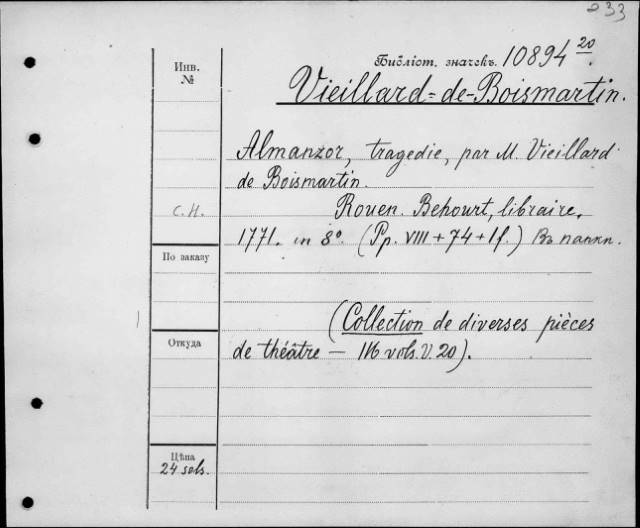 233
Библiот. значекъ. 10894 20.
Инв.
№
Vieillard-de-Boismartin.
Almanzor, tragedie, par M. Vieillard
de Boismartin.
С.Н.
Rouen. Behourt, libraire.
1771. in 8°. (Pp. VIII + 74 + 1f.) Въ папкѣ.
По заказу
(Collection de diverses pièces
Откуда
de théâtre — 116 vols. V. 20).
Цѣна
24 sols.